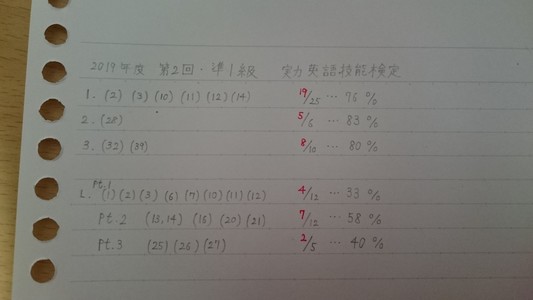 2019年度 第2回・準1級 実力英語技能検定
1. (2) (3) (10) (11) (12) (14) 19/25 … 76 %
2. (28) 5/6 … 83 %
3. (32) (39) 8/10 … 80 %
Pt.1
L. (1) (2) (3) (6) (7) (10) (11) (12) 4/12 … 33 %
Pt.2 (13,14) (18) (20) (21) 7/12 … 58 %
Pt.3 (25) (26) (27) 2/5 … 40 %